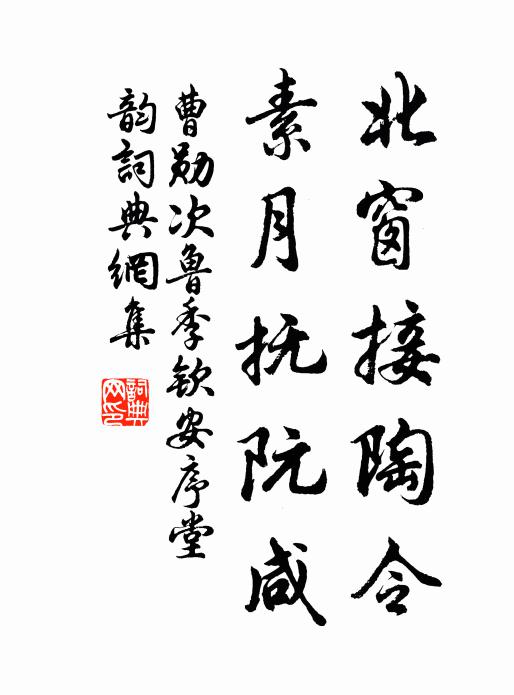 北窗接陶令
素月抚阮咸
曹勋次鲁季钦安序堂
韵词典网集
词典网印